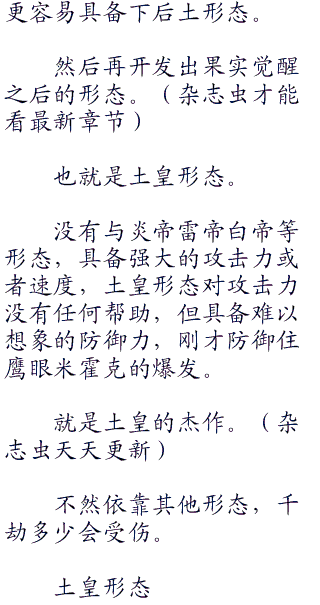 更容易具备下后土形态。
然后再开发出果实觉醒
之后的形态。（杂志虫才能
看最新章节）
也就是土皇形态。
没有与炎帝雷帝白帝等
形态，具备强大的攻击力或
者速度，土皇形态对攻击力
没有任何帮助，但具备难以
想象的防御力，刚才防御住
鹰眼米霍克的爆发。
就是土皇的杰作。（杂
志虫天天更新）
不然依靠其他形态，千
劫多少会受伤。
土皇形态